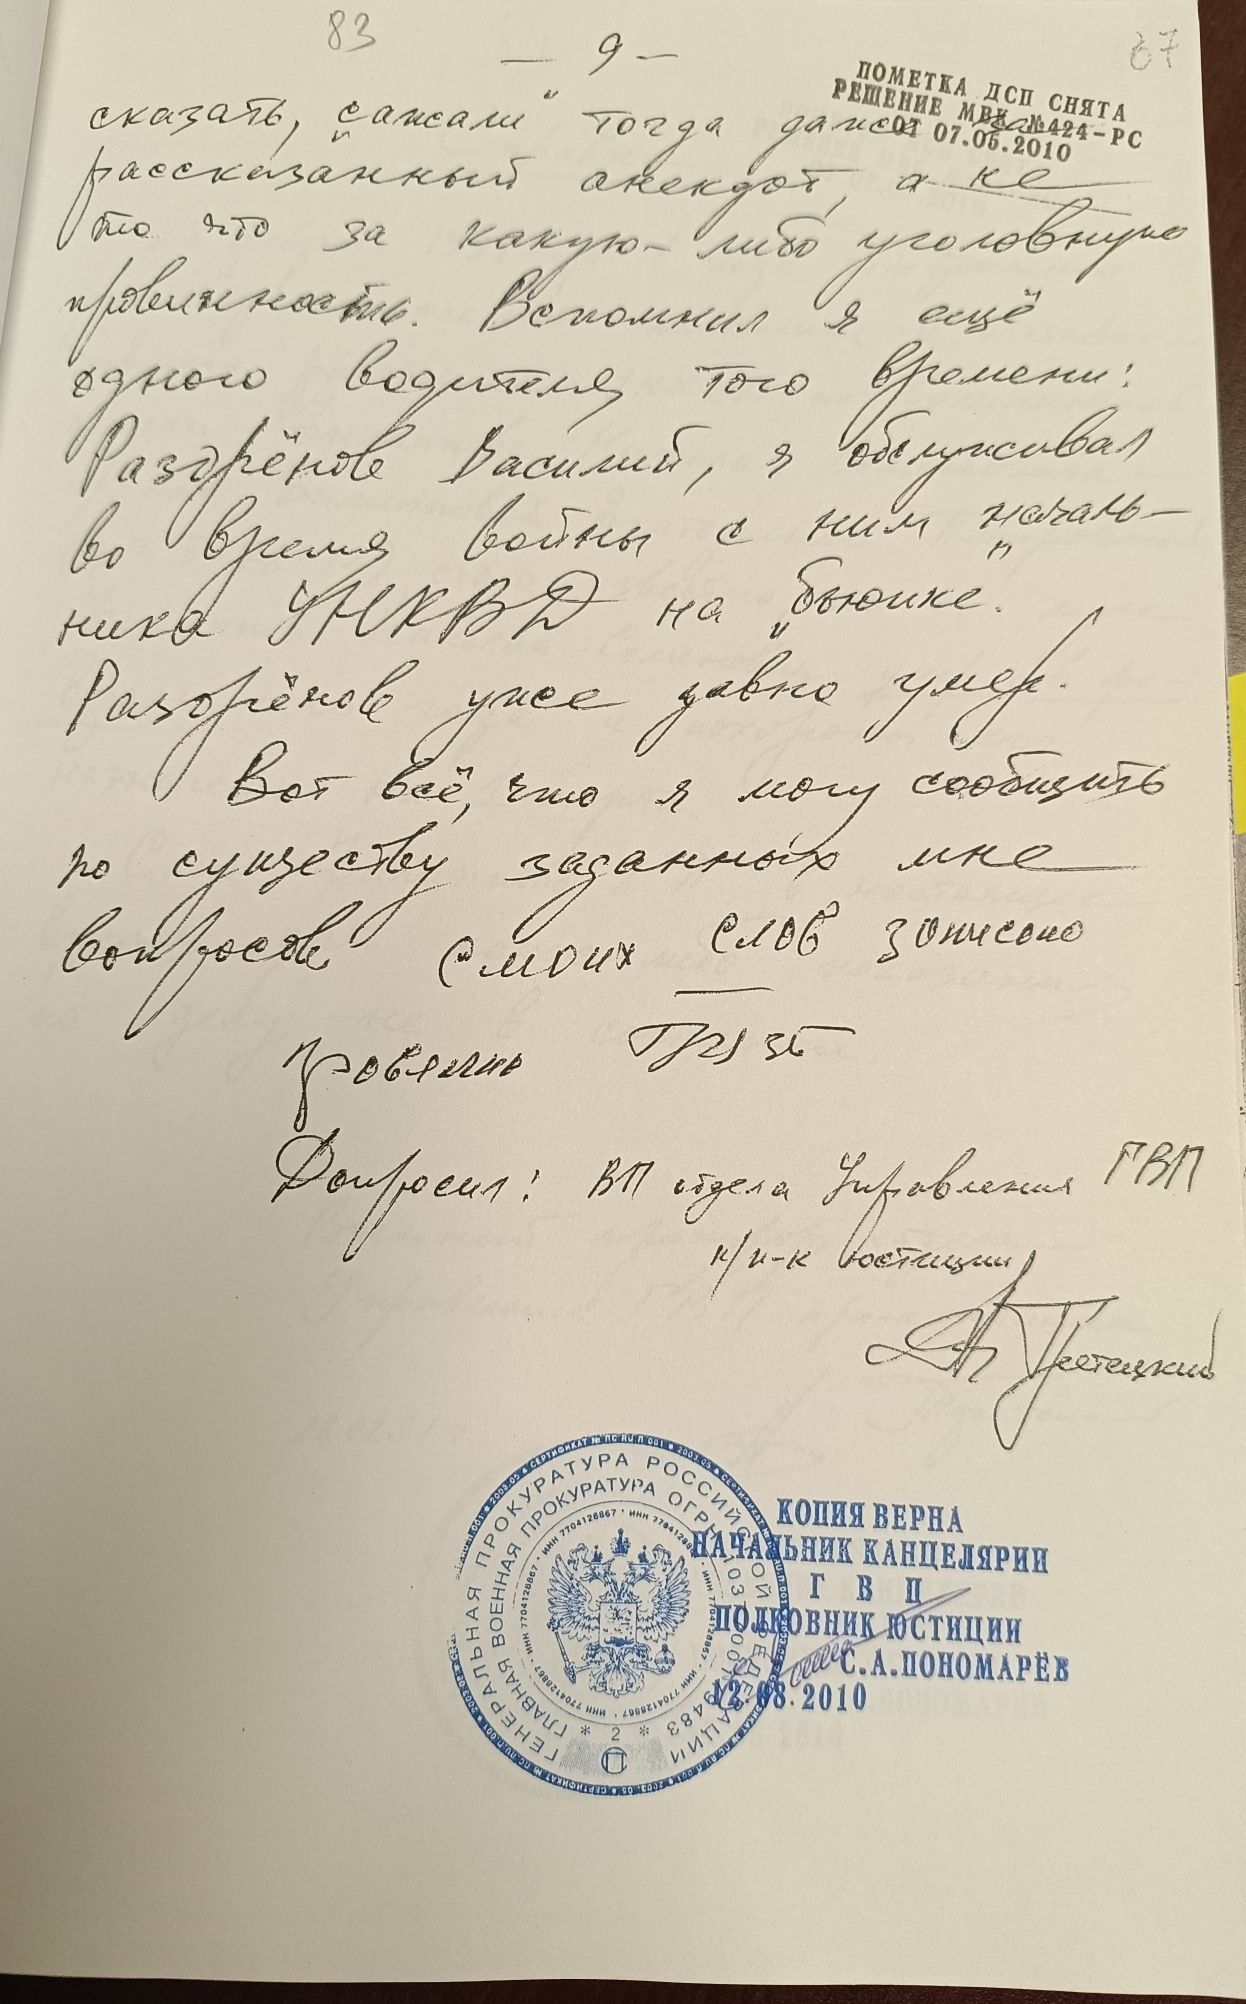 83
— 9 —
67
ПОМЕТКА ДСП СНЯТА
РЕШЕНИЕ МВК №424-РС
ОТ 07.05.2010
сказать, „сажали“ тогда даже за
рассказанный анекдот, а не
то что за какую-либо уголовную
провинность. Вспомнил я ещё
одного водителя того времени:
Разорёнов Василий, я обслуживал
во время войны с ним началь-
ника УНКВД на „бьюике“.
Разорёнов уже давно умер.
Вот всё, что я могу сообщить
по существу заданных мне
вопросов С моих слов записано
Допросил: ВП отдела Управления ГВП
п/п-к юстиции
КОПИЯ ВЕРНА
НАЧАЛЬНИК КАНЦЕЛЯРИИ
Г В П
ПОЛКОВНИК ЮСТИЦИИ
С.А.ПОНОМАРЁВ
12.08.2010
ГЕНЕРАЛЬНАЯ ПРОКУРАТУРА РОССИЙСКОЙ ФЕДЕРАЦИИ
ГЛАВНАЯ ВОЕННАЯ ПРОКУРАТУРА ОГРН
ИНН 7704128867
* 2 *